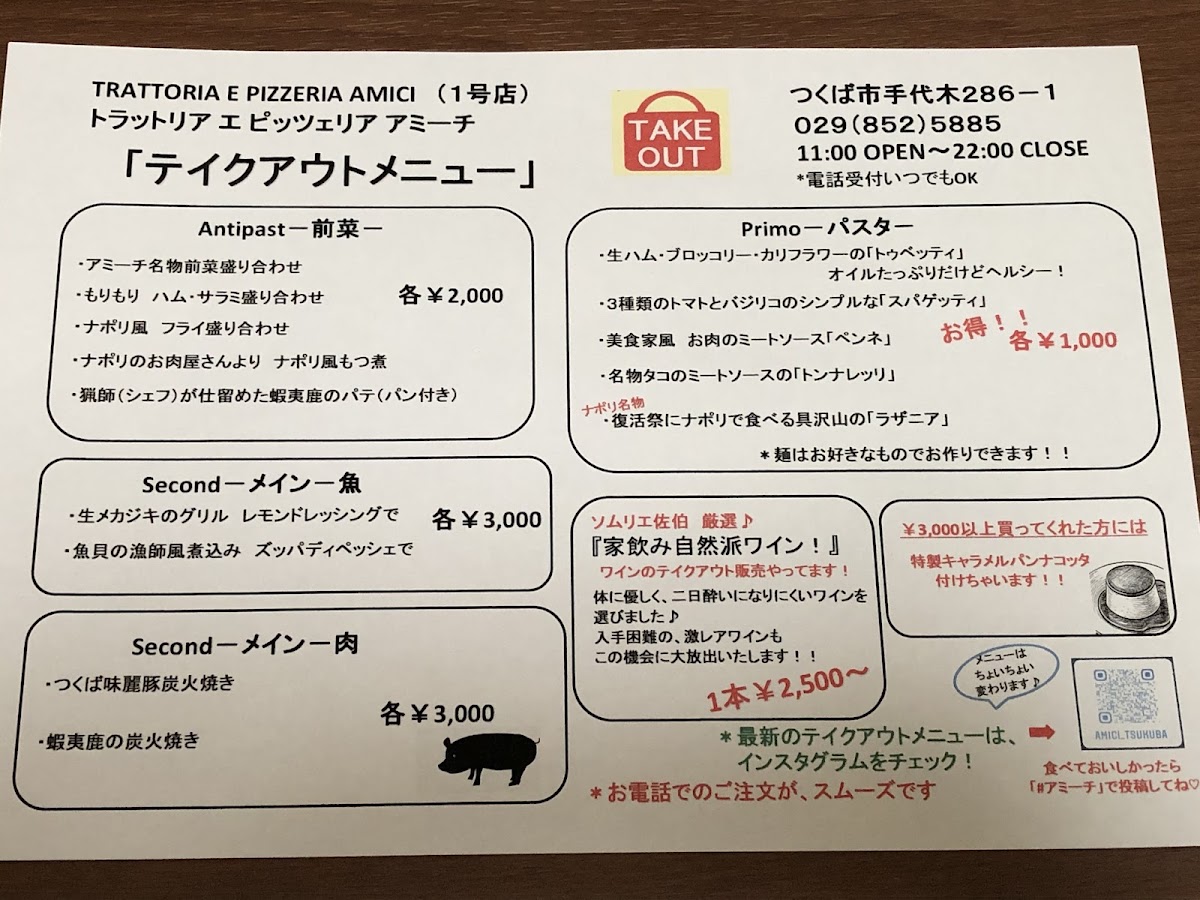 TRATTORIA E PIZZERIA AMICI (1号店)
トラットリア エ ピッツェリア アミーチ
「テイクアウトメニュー」
TAKE
OUT
つくば市手代木286－1
029(852)5885
11:00 OPEN～22:00 CLOSE
*電話受付いつでもOK
Antipast－前菜－
・アミーチ名物前菜盛り合わせ
・もりもり ハム・サラミ盛り合わせ
各￥2,000
・ナポリ風 フライ盛り合わせ
・ナポリのお肉屋さんより ナポリ風もつ煮
・猟師(シェフ)が仕留めた蝦夷鹿のパテ(パン付き)
Second－メイン－魚
・生メカジキのグリル レモンドレッシングで
各￥3,000
・魚貝の漁師風煮込み ズッパディペッシェで
Second－メイン－肉
・つくば味麗豚炭火焼き
各￥3,000
・蝦夷鹿の炭火焼き
Primo－パスター
・生ハム・ブロッコリー・カリフラワーの「トゥベッティ」
オイルたっぷりだけどヘルシー！
・3種類のトマトとバジリコのシンプルな「スパゲッティ」
・美食家風 お肉のミートソース「ペンネ」
お得！！
各￥1,000
・名物タコのミートソースの「トンナレッリ」
ナポリ名物
・復活祭にナポリで食べる具沢山の「ラザニア」
＊麺はお好きなものでお作りできます！！
ソムリエ佐伯 厳選♪
『家飲み自然派ワイン！』
ワインのテイクアウト販売やってます！
体に優しく、二日酔いになりにくいワインを
選びました♪
入手困難の、激レアワインも
この機会に大放出いたします！！
1本￥2,500～
￥3,000以上買ってくれた方には
特製キャラメルパンナコッタ
付けちゃいます！！
メニューは
ちょいちょい
変わります♪
AMICI_TSUKUBA
＊最新のテイクアウトメニューは、
インスタグラムをチェック！
＊お電話でのご注文が、スムーズです
食べておいしかったら
「#アミーチ」で投稿してね♡